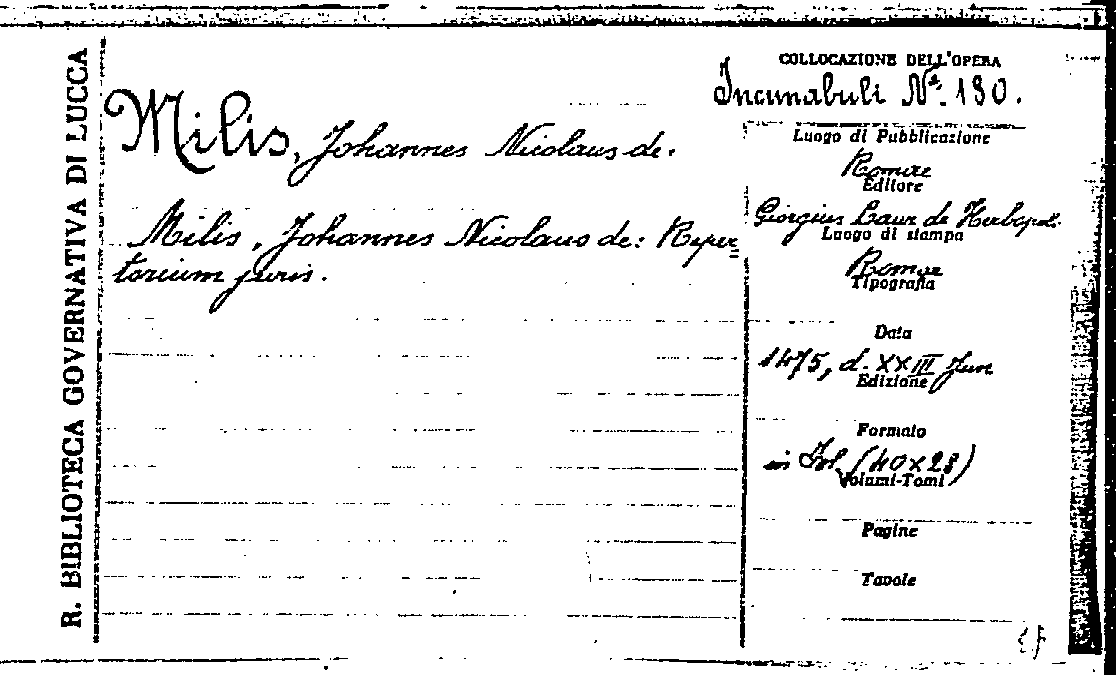 R. BIBLIOTECA GOVERNATIVA DI LUCCA
Milis, Johannes Nicolaus de.
Milis, Johannes Nicolaus de: Reper=
torium juris.
COLLOCAZIONE DELL'OPERA
Incunabuli Nº. 130.
Luogo di Pubblicazione
Romae
Editore
Giorgius Laur de Herbipol.
Luogo di stampa
Romae
Tipografia
Data
1475, d. XXIII Jun
Edizione
Formato
in Fol. (40x28)
Volumi-Tomi
Pagine
Tavole